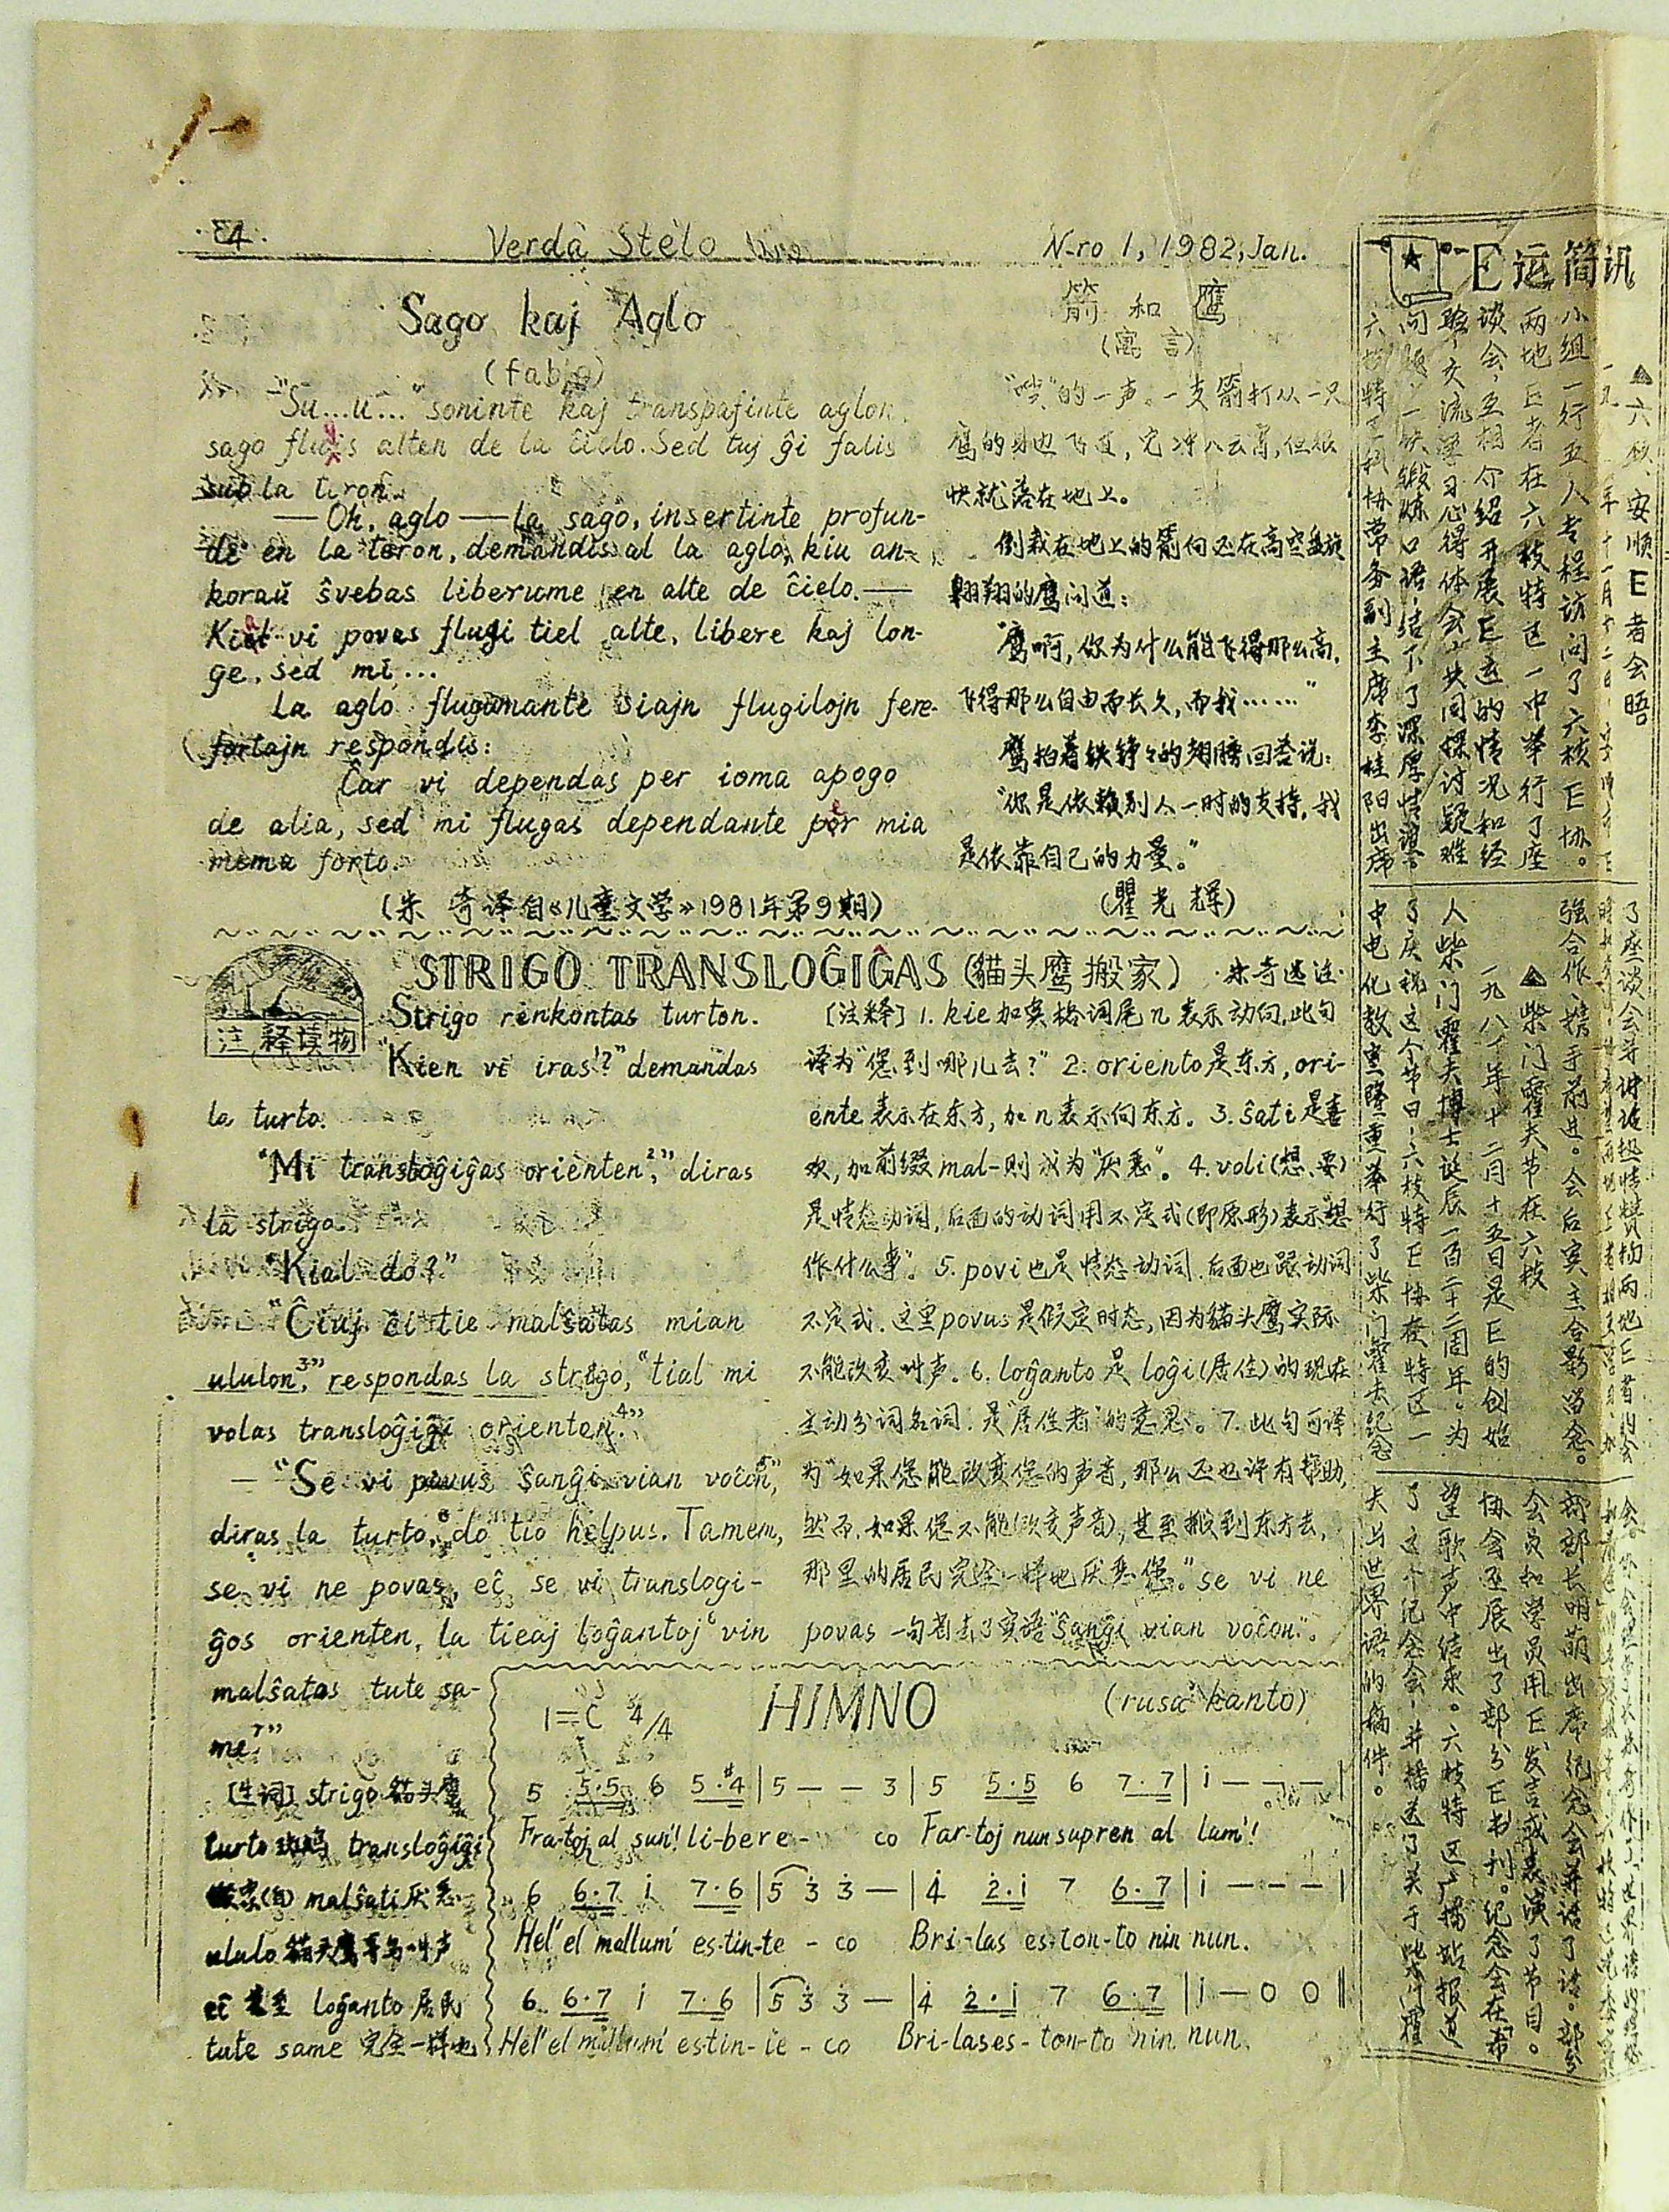 E4.
Verda Stelo
N-ro 1, 1982, Jan.
Sago kaj Aglo
(fablo)
"Su...u..." soninte kaj transpafinte aglon,
sago flugis alten de la ĉielo. Sed tuj ĝi falis
sub la teron.
— Oh, aglo — la sago, insertinte profun-
de en la teron, demandis al la aglo, kiu an-
koraŭ ŝvebas liberume en alte de ĉielo. —
Kial vi povas flugi tiel alte, libere kaj lon-
ge, sed mi ...
La aglo flugumante siajn flugilojn fere-
fortajn respondis:
Ĉar vi dependas per ioma apogo
de alia, sed mi flugas dependante per mia
mema forto.
(朱奇译自《儿童文学》1981年第9期)
箭和鹰
(寓言)
"嗖"的一声。一支箭打从一只
鹰的身边飞过,它冲入云霄,但很
快就落在地上。
倒栽在地上的箭向还在高空盘旋
翱翔的鹰问道:
"鹰啊,你为什么能飞得那么高,
飞得那么自由而长久,而我……"
鹰拍着铁铮々的翅膀回答说:
"你是依赖别人一时的支持,我
是依靠自己的力量。"
(瞿光辉)
STRIGO TRANSLOĜIĜAS (貓头鹰搬家) 朱奇选注
注释读物
Strigo renkontas turton.
"Kien vi iras¹?" demandas
la turto.
"Mi transloĝiĝas orienten²," diras
la strigo.
"Kial do?"
"Ĉiuj ĉi tie malŝatas mian
ululon³," respondas la strigo, "tial mi
volas transloĝiĝi orienten⁴."
— "Se vi povus ŝanĝi vian voĉon⁵,"
diras la turto, "do tio helpus. Tamen,
se vi ne povas, eĉ se vi translogi-
ĝos orienten, la tieaj loĝantoj⁶ vin
malŝatas tute sa-
me⁷."
[生词] strigo 貓头鹰
turto 斑鸠 transloĝiĝi
搬家(自) malŝati 厌恶
ululo 貓头鹰等鸟叫声
eĉ 甚至 loĝanto 居民
tute same 完全一样地
[注释] 1. kie 加宾格词尾 n 表示动向,此句
译为"您到哪儿去?" 2. oriento 是东方, ori-
ente 表示在东方,加 n 表示向东方。 3. ŝati 是喜
欢,加前缀 mal-则成为"厌恶"。 4. voli (想、要)
是情态动词,后面的动词用不定式(即原形)表示"想
作什么事"。 5. povi 也是情态动词,后面也跟动词
不定式. 这里 povus 是假定时态,因为貓头鹰实际
不能改变叫声。 6. loĝanto 是 loĝi (居住)的现在
主动分词名词. 是"居住者"的意思。 7. 此句可译
为"如果您能改变您的声音,那么还也许有帮助,
然而,如果您不能(改变声音),甚至搬到东方去,
那里的居民完全一样地厌恶您。" se vi ne
povas 一句省去了宾语"ŝanĝi vian voĉon"。
1=C 4/4
HIMNO
(rusa kanto)
5 5·5 6 5·#4 | 5 — — 3 | 5 5·5 6 7·7 | i — — — |
Fra-toj al sun'! li-bere- co Far-toj nun supren al lum'!
6 6·7 i 7·6 | 5 3 3 — | 4 2·i 7 6·7 | i — — — |
Hel' el mallum' es-tin-te - co Bri-las es-ton-to nin nun.
6 6·7 i 7·6 | 5 3 3 — | 4 2·i 7 6·7 | i — 0 0 ‖
Hel' el mallum' es-tin-te - co Bri-las es-ton-to nin nun.
E运简讯
▲六枝、安顺E者会晤
小组一行五人专程访问了六枝E协。
两地E者在六枝特区一中举行了座
谈会,互相介绍开展E运的情况和经
验,交流学习心得体会,共同探讨疑难
问题,一块锻炼口语,结下了深厚情谊。
六枝特区科协常务副主席李桂阳出席
了座谈会并讲话,热情赞扬两地E者的会
强合作,携手前进。会后宾主合影留念。
▲柴门霍夫节在六枝
一九八一年十二月十五日是E的创始
人柴门霍夫博士诞辰一百二十二周年。为
了庆祝这个节日,六枝特E协在特区一
中电化教室隆重举行了柴门霍夫纪念
部部长明萌出席纪念会并讲了话。部分
会员和学员用E发言或表演了节目。
协会还展出了部分E书刊。纪念会在"希
望歌"声中结束。六枝特区广播站报道
了这个纪念会,并播送了关于柴门霍
夫与世界语的稿件。